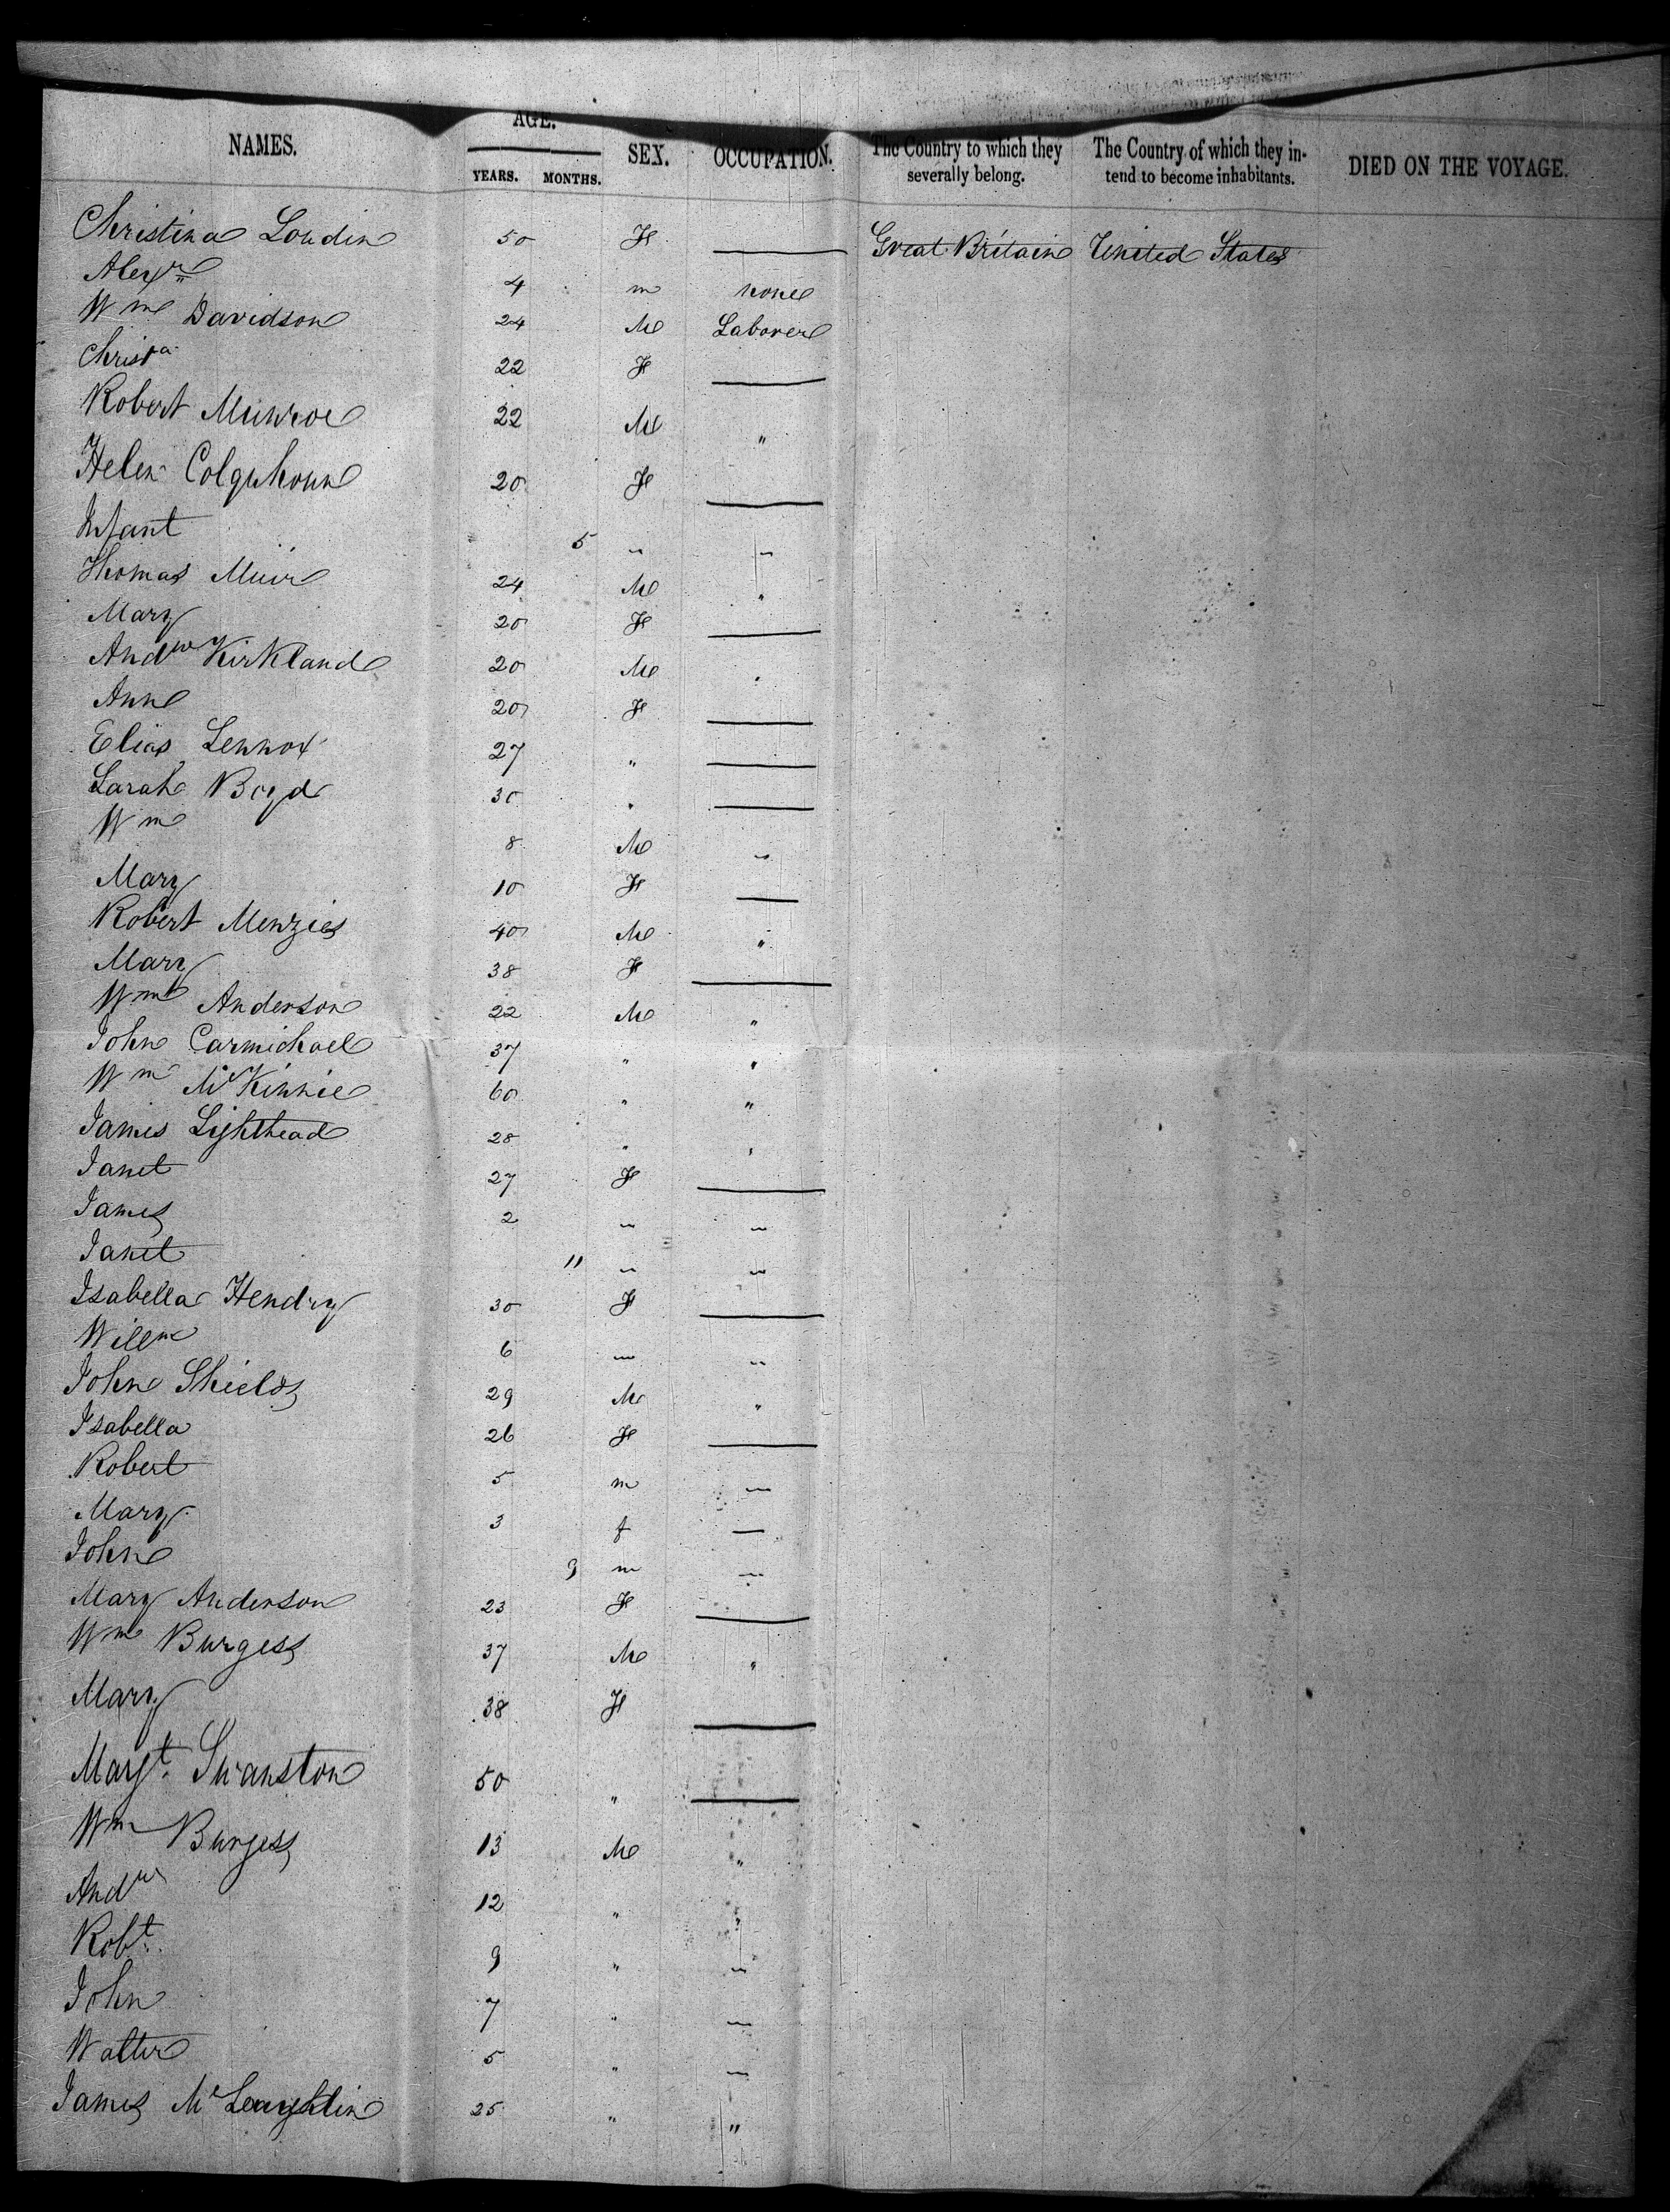 AGE.
NAMES. YEARS. MONTHS. SEX. OCCUPATION. The Country to which they severally belong. The Country of which they intend to become inhabitants. DIED ON THE VOYAGE.
Christina Loudin 50 F —— Great Britain United States
Alexr 4 m none
Wm Davidson 24 M Laborer
Christa 22 F ——
Robert Munroe 22 M "
Helen Colquhoun 20 F ——
Infant 5 " "
Thomas Muir 24 M "
Mary 20 F ——
Andw Kirkland 20 M "
Ann 20 F ——
Elias Lennox 27 " ——
Sarah Boyd 30 " ——
Wm 8 M "
Mary 10 F ——
Robert Menzies 40 M "
Mary 38 F ——
Wm Anderson 22 M "
John Carmichael 37 " "
Wm McKinnie 60 " "
James Lighthead 28 " "
Janet 27 F ——
James 2 " "
Janet 11 " "
Isabella Hendry 30 F ——
Willm 6 " "
John Shields 29 M "
Isabella 26 F ——
Robert 5 m "
Mary 3 f —
John 9 m "
Mary Anderson 23 F ——
Wm Burgess 37 M "
Mary 38 F ——
Margt. Swanston 50 " ——
Wm Burgess 13 M "
Andw 12 " "
Robt. 9 " "
John 7 " "
Walter 5 " "
James McLaughlin 25 " "